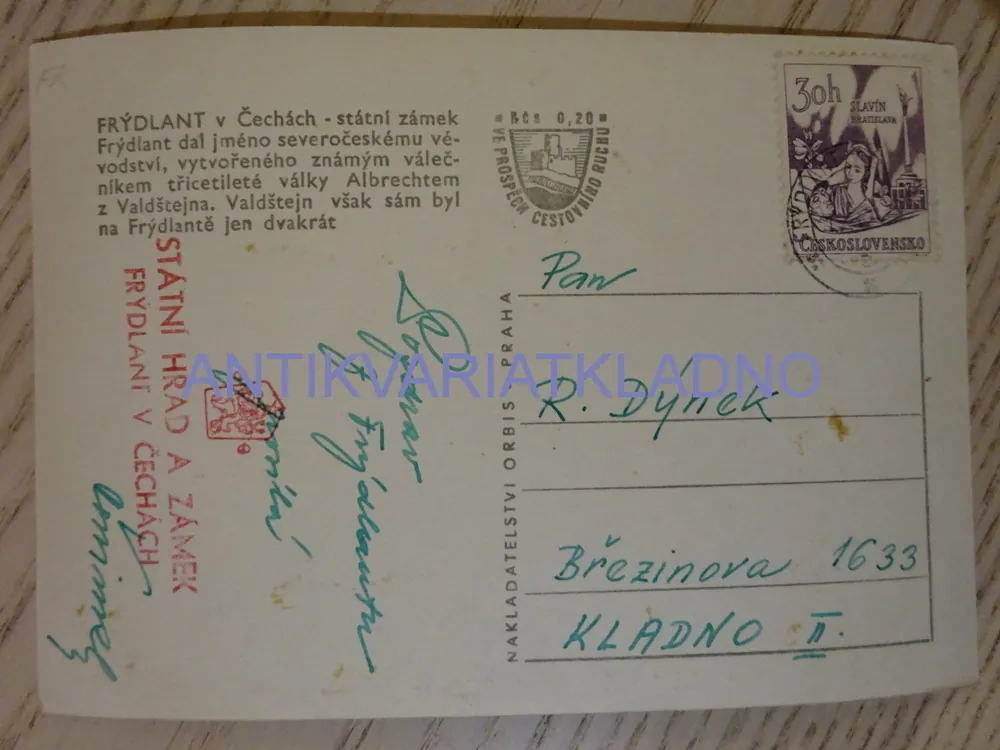 FRÝDLANT v Čechách - státní zámek
Frýdlant dal jméno severočeskému vé-
vodství, vytvořeného známým váleč-
níkem třicetileté války Albrechtem
z Valdštejna. Valdštejn však sám byl
na Frýdlantě jen dvakrát
STÁTNÍ HRAD A ZÁMEK
FRÝDLANT V ČECHÁCH
Pozdrav
z Frýdlantu
Kčs 0,20
VE PROSPĚCH CESTOVNÍHO RUCHU
30h
SLAVÍN
BRATISLAVA
ČESKOSLOVENSKO
FRÝDL
NAKLADATELSTVÍ ORBIS PRAHA
Pan
R. Dýnek
Březinova 1633
KLADNO II.
ANTIKVARIATKLADNO